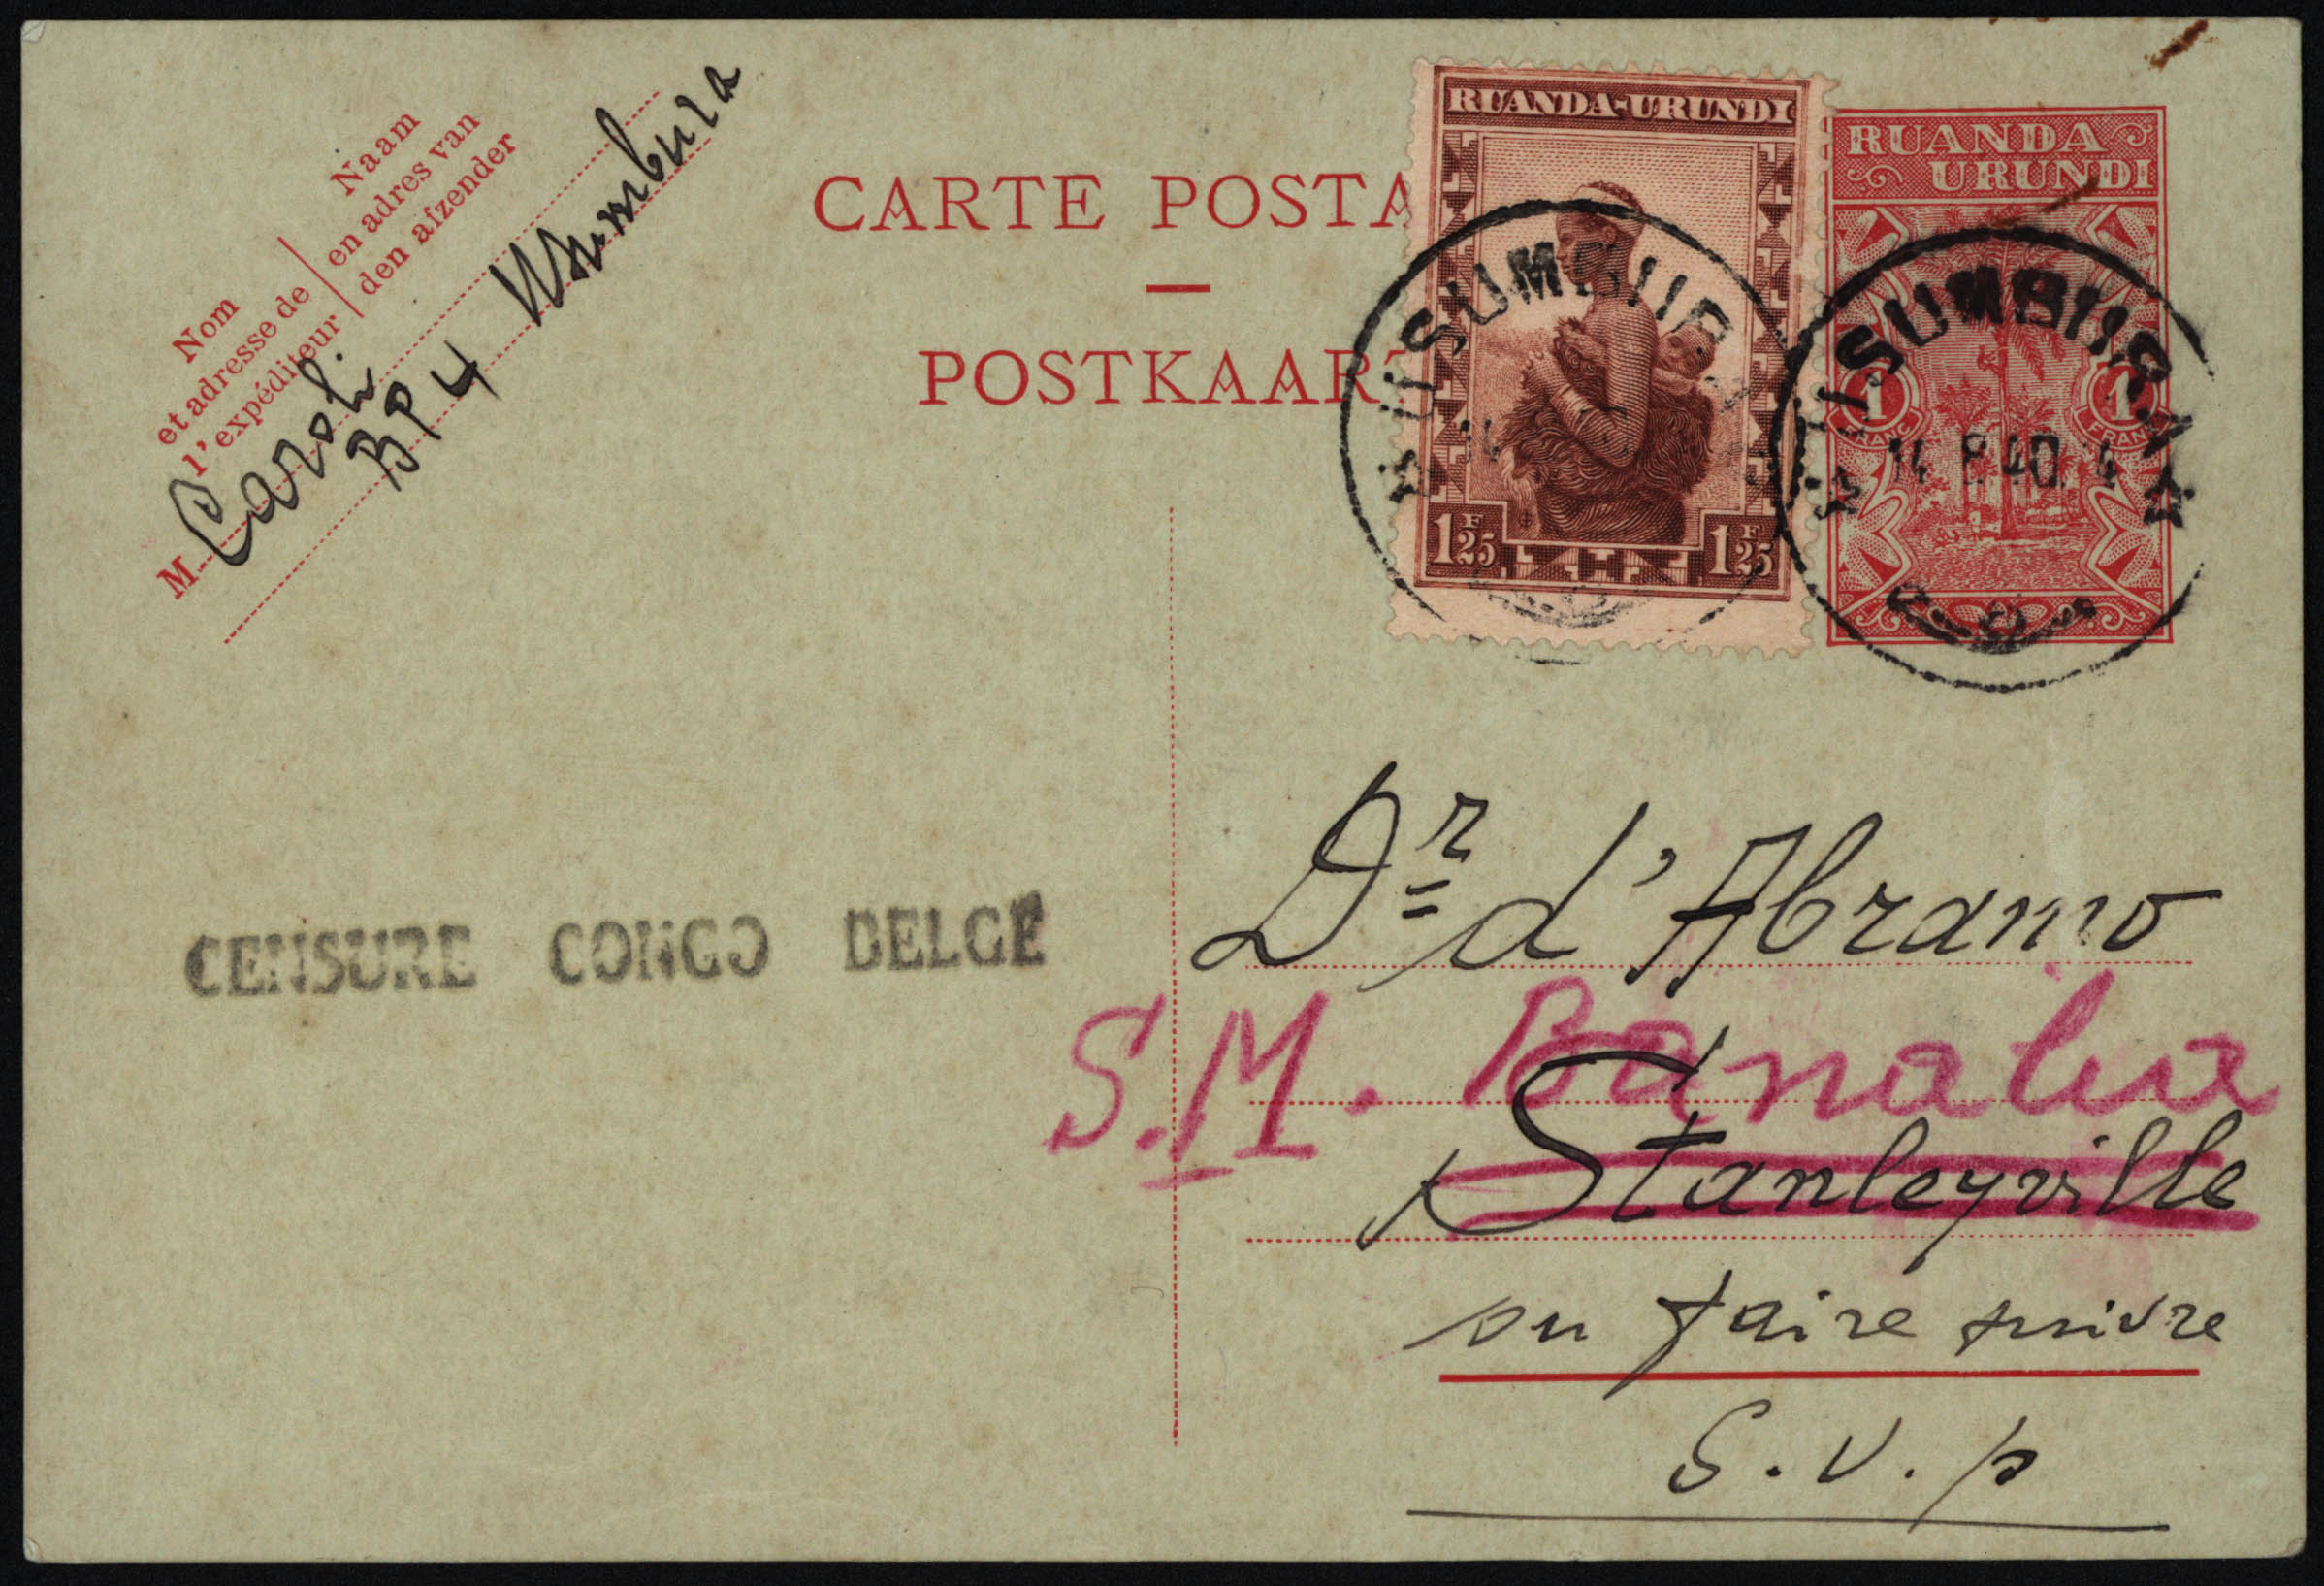 Nom
et adresse de
l'expéditeur
Naam
en adres van
den afzender
M Caroli
BP 4 Usumbura
CARTE POSTA
POSTKAART
RUANDA-URUNDI
1F25 1F25
RUANDA
URUNDI
1 FRANC 1 FRANK
USUMBURA
14
USUMBURA
14 8 40. 4
CENSURE CONGO BELGE
Dr d'Abramo
S.M. Banalia
Stanleyville
ou faire suivre
S.V.p